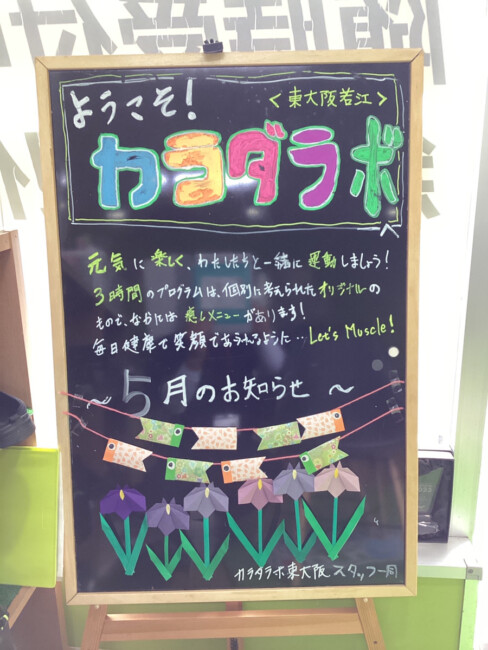 ようこそ!
<東大阪若江>
カラダラボ
元気に楽しく、わたしたちと一緒に運動しましょう!
3時間のプログラムは、個別に考えられたオリジナルの
もので、なかには癒しメニューがあります!
毎日健康で笑顔であられるように‥Let's Muscle!
~5月のお知らせ~
カラダラボ東大阪スタッフ一同